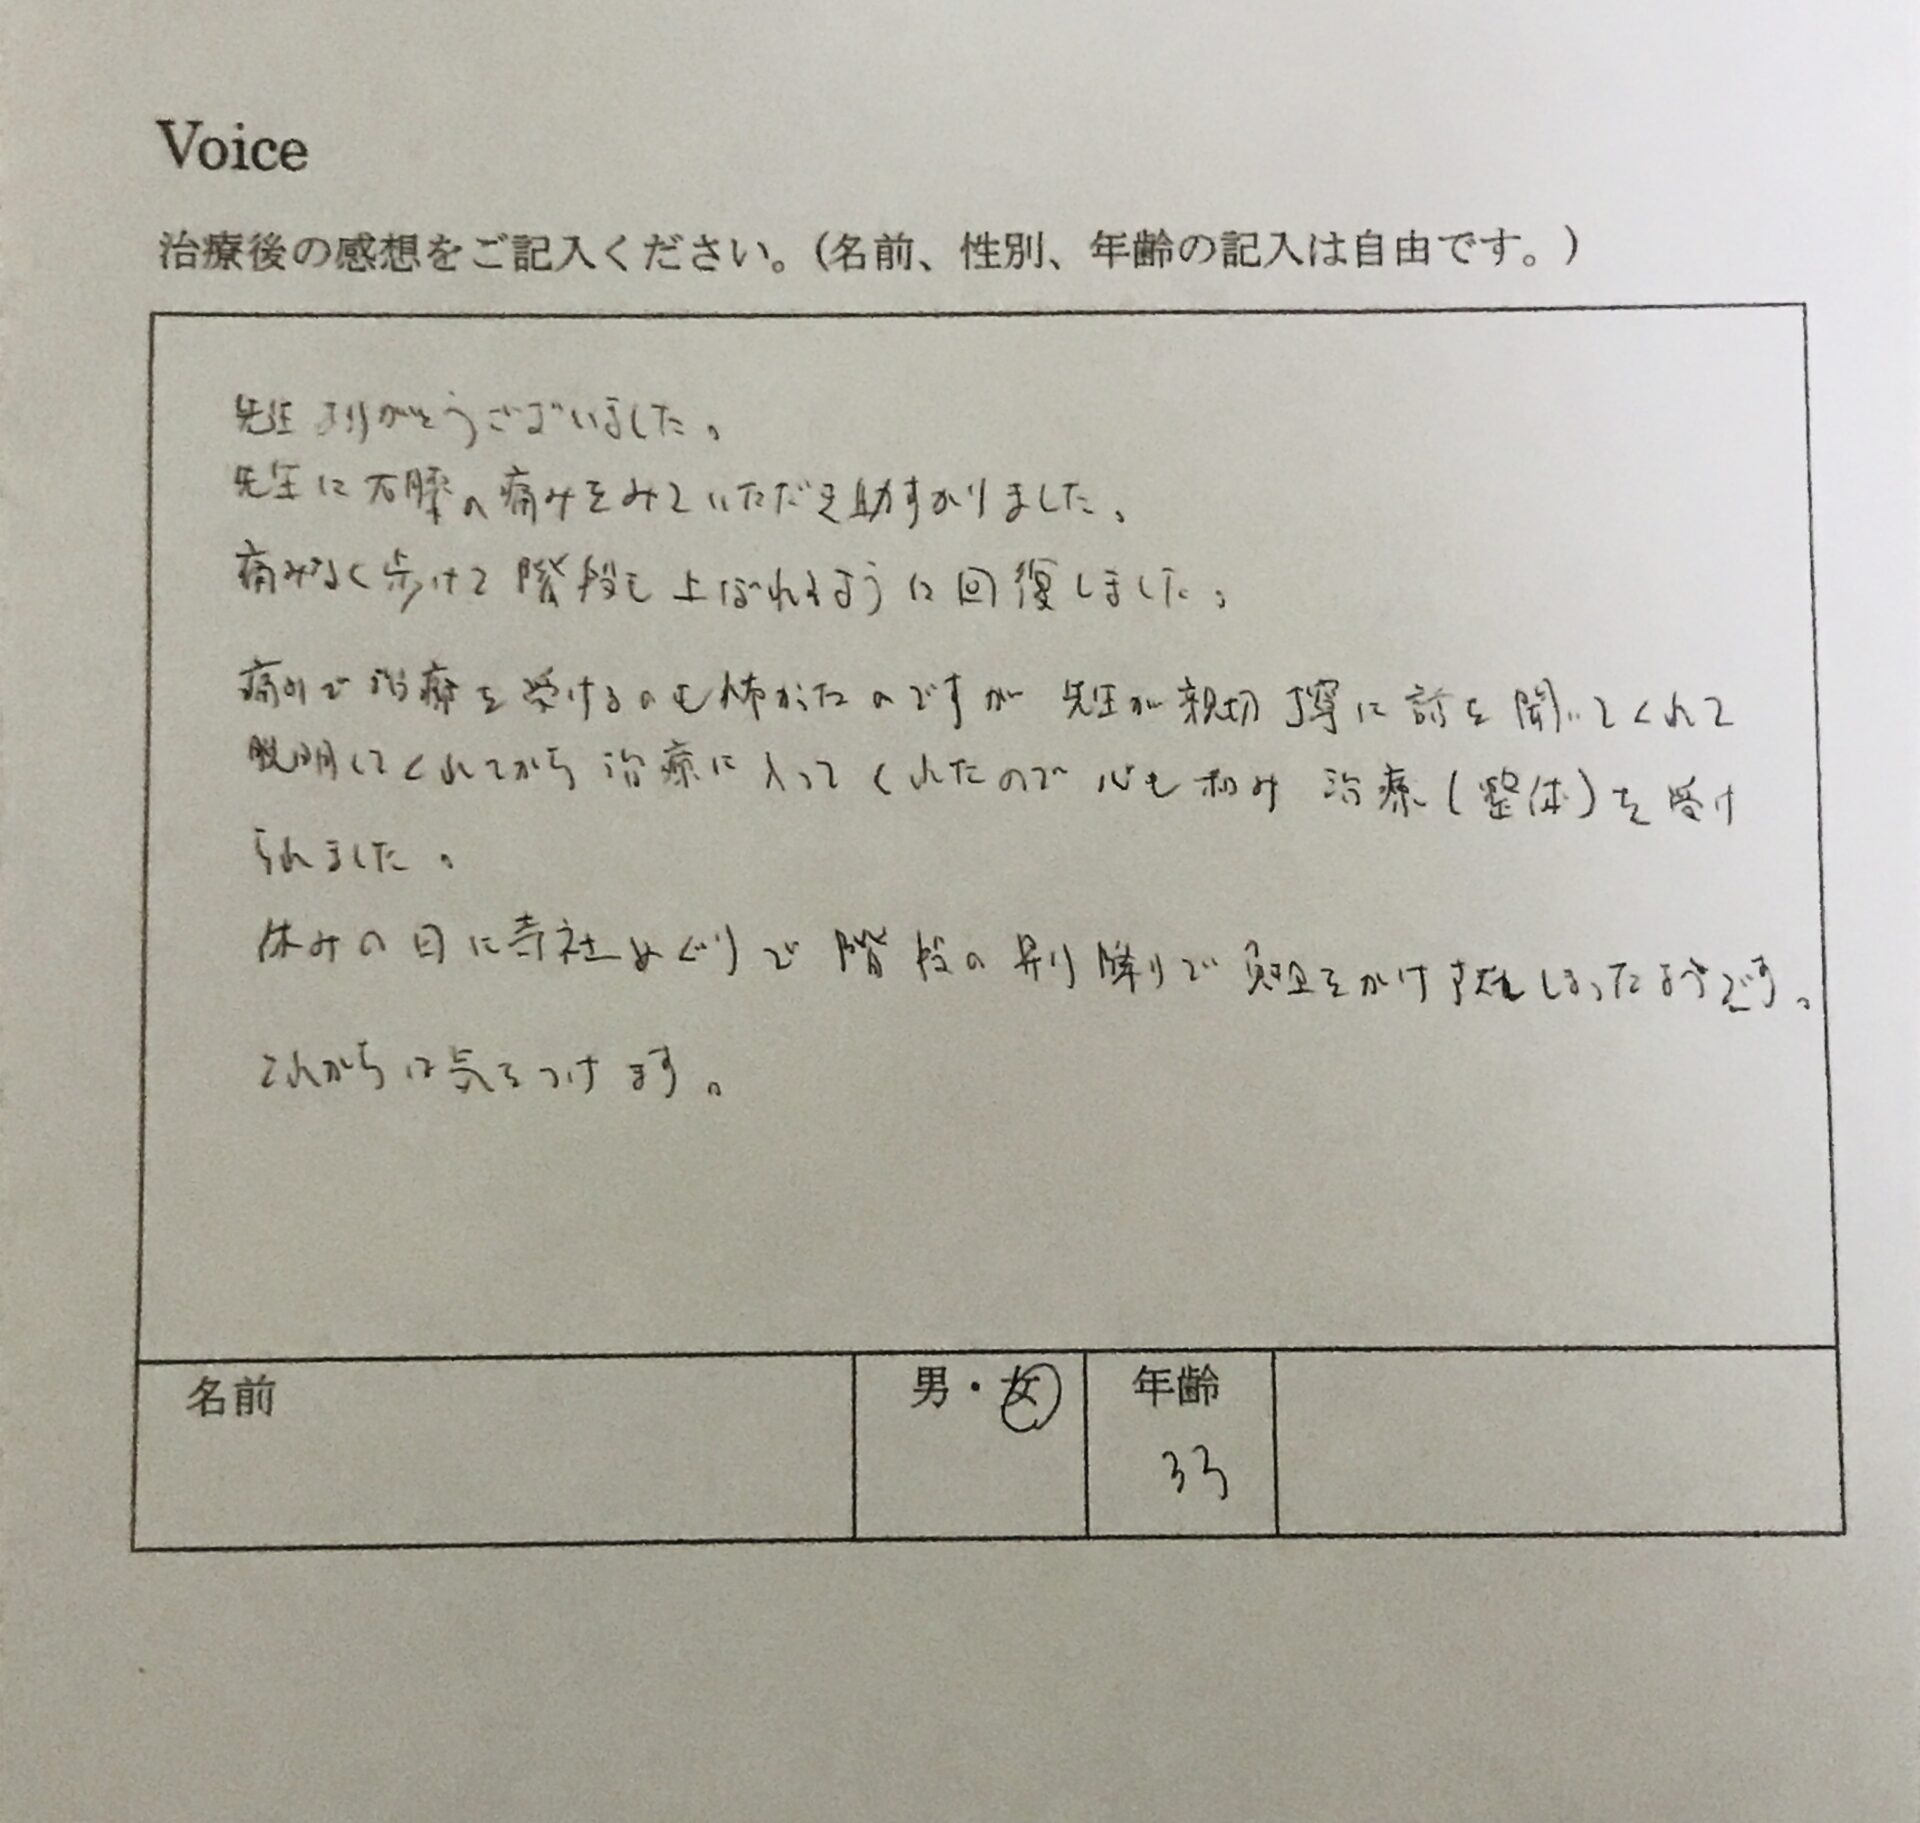 Voice
治療後の感想をご記入ください。(名前、性別、年齢の記入は自由です。)
先生ありがとうございました。
先生に右膝の痛みをみていただき助すかりました。
痛みなく歩けて階段も上ぼれるように回復しました。
痛みで治療を受けるのも怖かったのですが先生が親切丁寧に話を聞いてくれて
説明してくれてから治療に入ってくれたので心も和み治療(整体)を受け
られました。
休みの日に寺社めぐりで階段の昇り降りで負担をかけ しまったようです。
これからは気をつけます。
名前 男・女 年齢
33